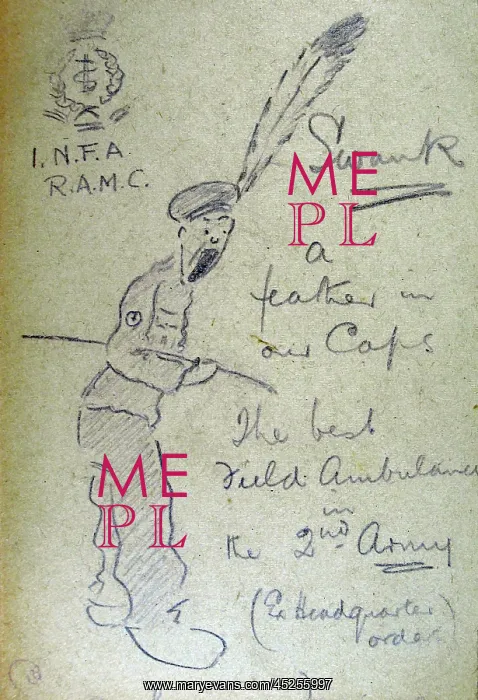 I.N.F.A
R.A.M.C.
Swank
a
feather in
our Caps
The best
Field Ambulance
in
the 2nd Army
(Ex Headquarter
orders)
ME
PL
ME
PL
www.maryevans.com/45255997